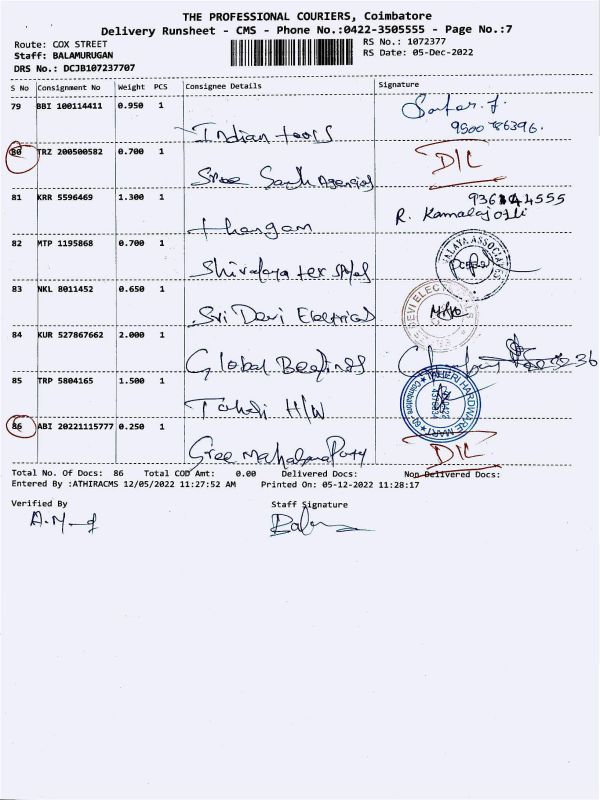 THE PROFESSIONAL COURIERS, Coimbatore
Delivery Runsheet - CMS - Phone No.:0422-3505555 - Page No.:7
Route: COX STREET RS No.: 1072377
Staff: BALAMURUGAN RS Date: 05-Dec-2022
DRS No.: DCJB107237707
S No Consignment No Weight PCS Consignee Details Signature
79 BBI 100114411 0.950 1
Indian tools
9500 786396.
80 TRZ 200500582 0.700 1
D/L
Sree Agencies
81 KRR 5596469 1.300 1
R. Kamalajothi
thangam
82 MTP 1195868 0.700 1
Shivalaya tex
83 NKL 8011452 0.650 1
DEVI ELEC
Sri Devi Electrical
84 KUR 527867662 2.000 1
Global Bearings
85 TRP 5804165 1.500 1
HARDWARE MART
Coimbatore
H/W
86 ABI 20221115777 0.250 1
D/L
Sree
Total No. Of Docs: 86 Total COD Amt: 0.00 Delivered Docs: Non Delivered Docs:
Entered By :ATHIRACMS 12/05/2022 11:27:52 AM Printed On: 05-12-2022 11:28:17
Verified By Staff Signature